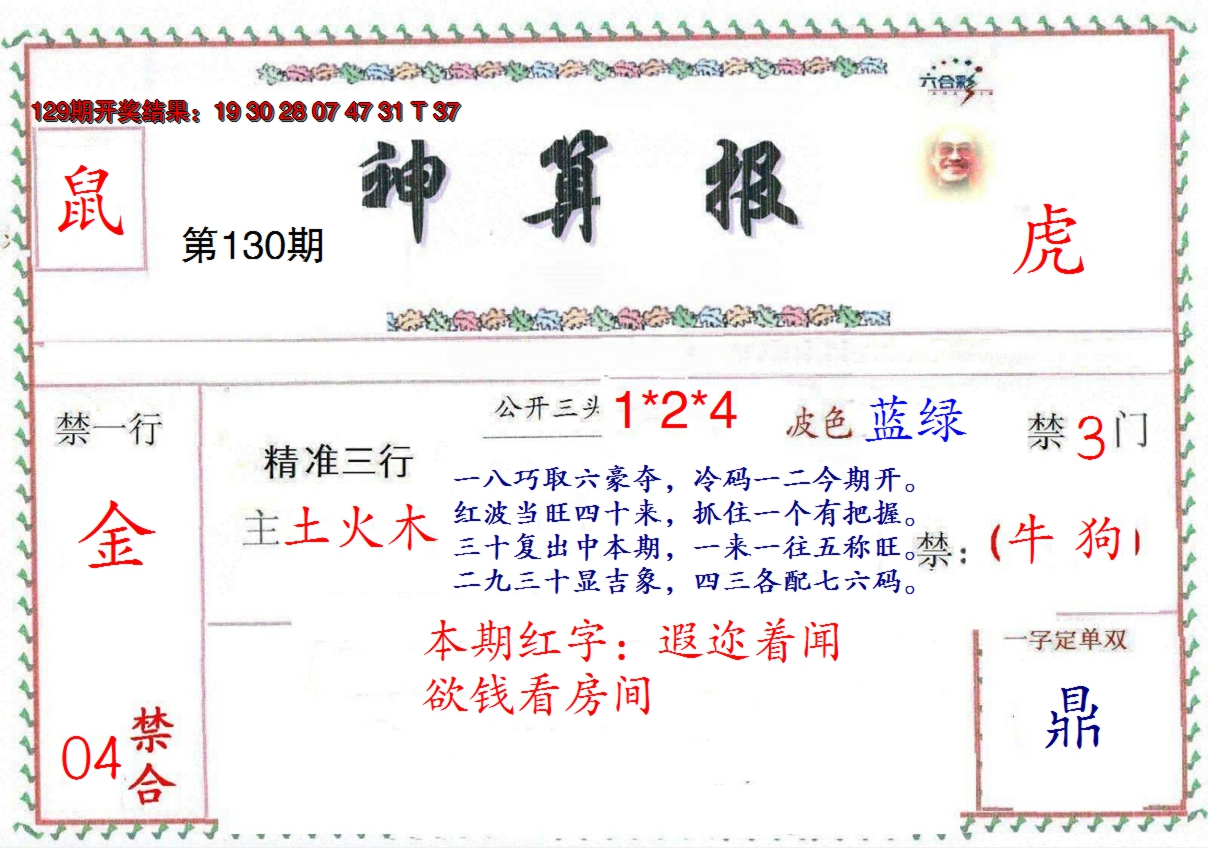 六合彩
129期开奖结果：19 30 28 07 47 31 T 37
神算报
鼠
第130期
虎
禁一行
金
04
禁合
精准三行
主土火木
公开三头 1*2*4
波色 蓝绿
禁3门
一八巧取六豪夺，冷码一二今期开。
红波当旺四十来，抓住一个有把握。
三十复出中本期，一来一往五称旺。
二九三十显吉象，四三各配七六码。
禁：(牛 狗)
本期红字：遐迩着闻
欲钱看房间
一字定单双
鼎